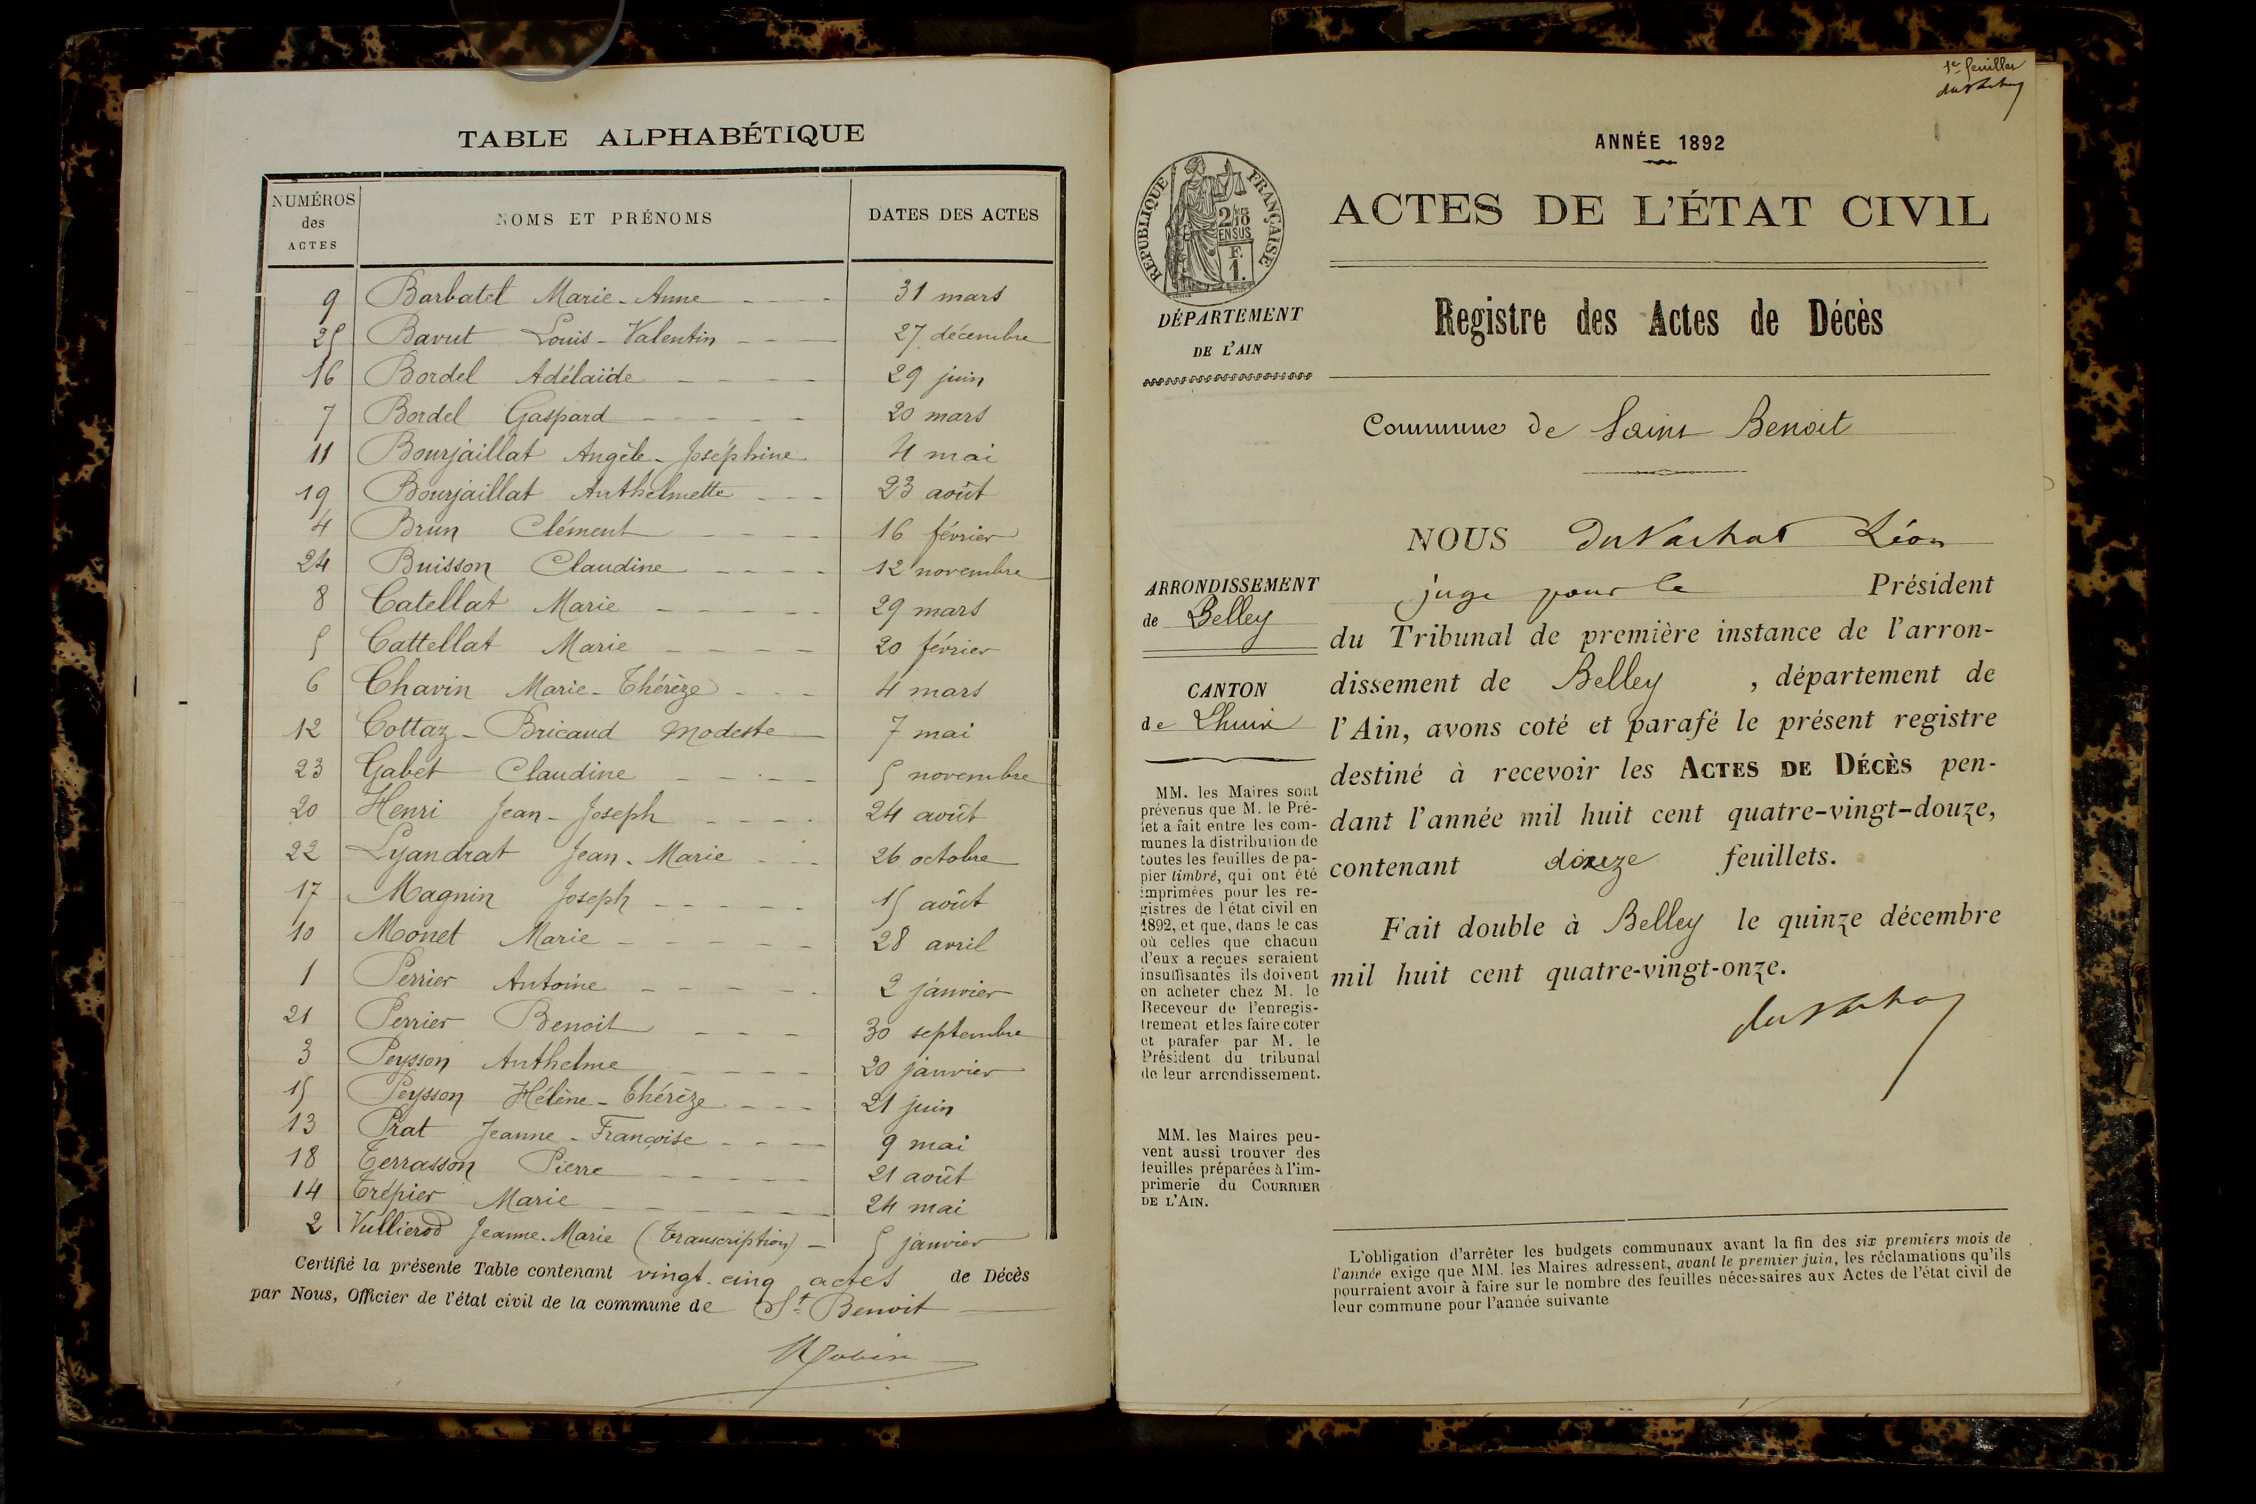 TABLE ALPHABÉTIQUE
NUMÉROS des ACTES NOMS ET PRÉNOMS DATES DES ACTES
9 Barbatel Marie-Anne 31 mars
25 Bavut Louis-Valentin 27 décembre
16 Bordel Adélaïde 29 juin
7 Bordel Gaspard 20 mars
11 Bourjaillat Angèle-Joséphine 4 mai
19 Bourjaillat Anthelmette 23 août
4 Brun Clément 16 février
24 Buisson Claudine 12 novembre
8 Catellat Marie 29 mars
5 Cattellat Marie 20 février
6 Chavin Marie-Thérèze 4 mars
12 Cottaz-Bricaud Modeste 7 mai
23 Gabet Claudine 5 novembre
20 Henri Jean-Joseph 24 août
22 Lyandrat Jean-Marie 26 octobre
17 Magnin Joseph 15 août
10 Monet Marie 28 avril
1 Perrier Antoine 2 janvier
21 Perrier Benoit 30 septembre
3 Peysson Anthelme 20 janvier
15 Peysson Hélène-Thérèze 21 juin
13 Prat Jeanne-Françoise 9 mai
18 Terrasson Pierre 21 août
14 Trépier Marie 24 mai
2 Vullierod Jeanne-Marie (Transcription) 5 janvier
Certifié la présente Table contenant vingt-cinq actes de Décès
par Nous, Officier de l'état civil de la commune de St Benoit
1er feuillet
ANNÉE 1892
ACTES DE L'ÉTAT CIVIL
Registre des Actes de Décès
RÉPUBLIQUE FRANÇAISE
2/10
EN SUS
F.
1.
DÉPARTEMENT
DE L'AIN
Commune de Saint Benoit
ARRONDISSEMENT
de Belley
CANTON
de Lhuis
MM. les Maires sont
prévenus que M. le Pré-
fet a fait entre les com-
munes la distribution de
toutes les feuilles de pa-
pier timbré, qui ont été
imprimées pour les re-
gistres de l'état civil en
1892, et que, dans le cas
où celles que chacun
d'eux a reçues seraient
insuffisantes ils doivent
en acheter chez M. le
Receveur de l'enregis-
trement et les faire coter
et parafer par M. le
Président du tribunal
de leur arrondissement.
MM. les Maires peu-
vent aussi trouver des
feuilles préparées à l'im-
primerie du COURRIER
DE L'AIN.
NOUS Duvachat Léon
juge pour le Président
du Tribunal de première instance de l'arron-
dissement de Belley , département de
l'Ain, avons coté et parafé le présent registre
destiné à recevoir les ACTES DE DÉCÈS pen-
dant l'année mil huit cent quatre-vingt-douze,
contenant feuillets.
Fait double à Belley le quinze décembre
mil huit cent quatre-vingt-onze.
L'obligation d'arrêter les budgets communaux avant la fin des six premiers mois de
l'année exige que MM. les Maires adressent, avant le premier juin, les réclamations qu'ils
pourraient avoir à faire sur le nombre des feuilles nécessaires aux Actes de l'état civil de
leur commune pour l'année suivante